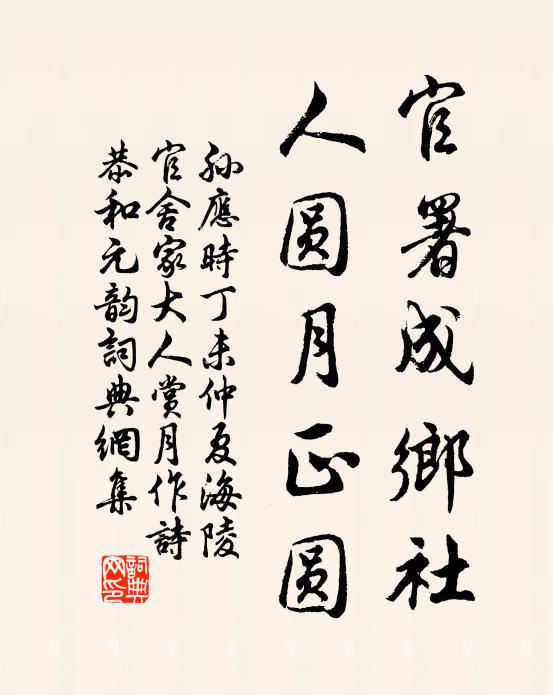 官署成鄉社
人圆月正圆
孙應時丁未仲夏海陵
官舍家大人賞月作詩
恭和元韵詞典網集
詞典网印